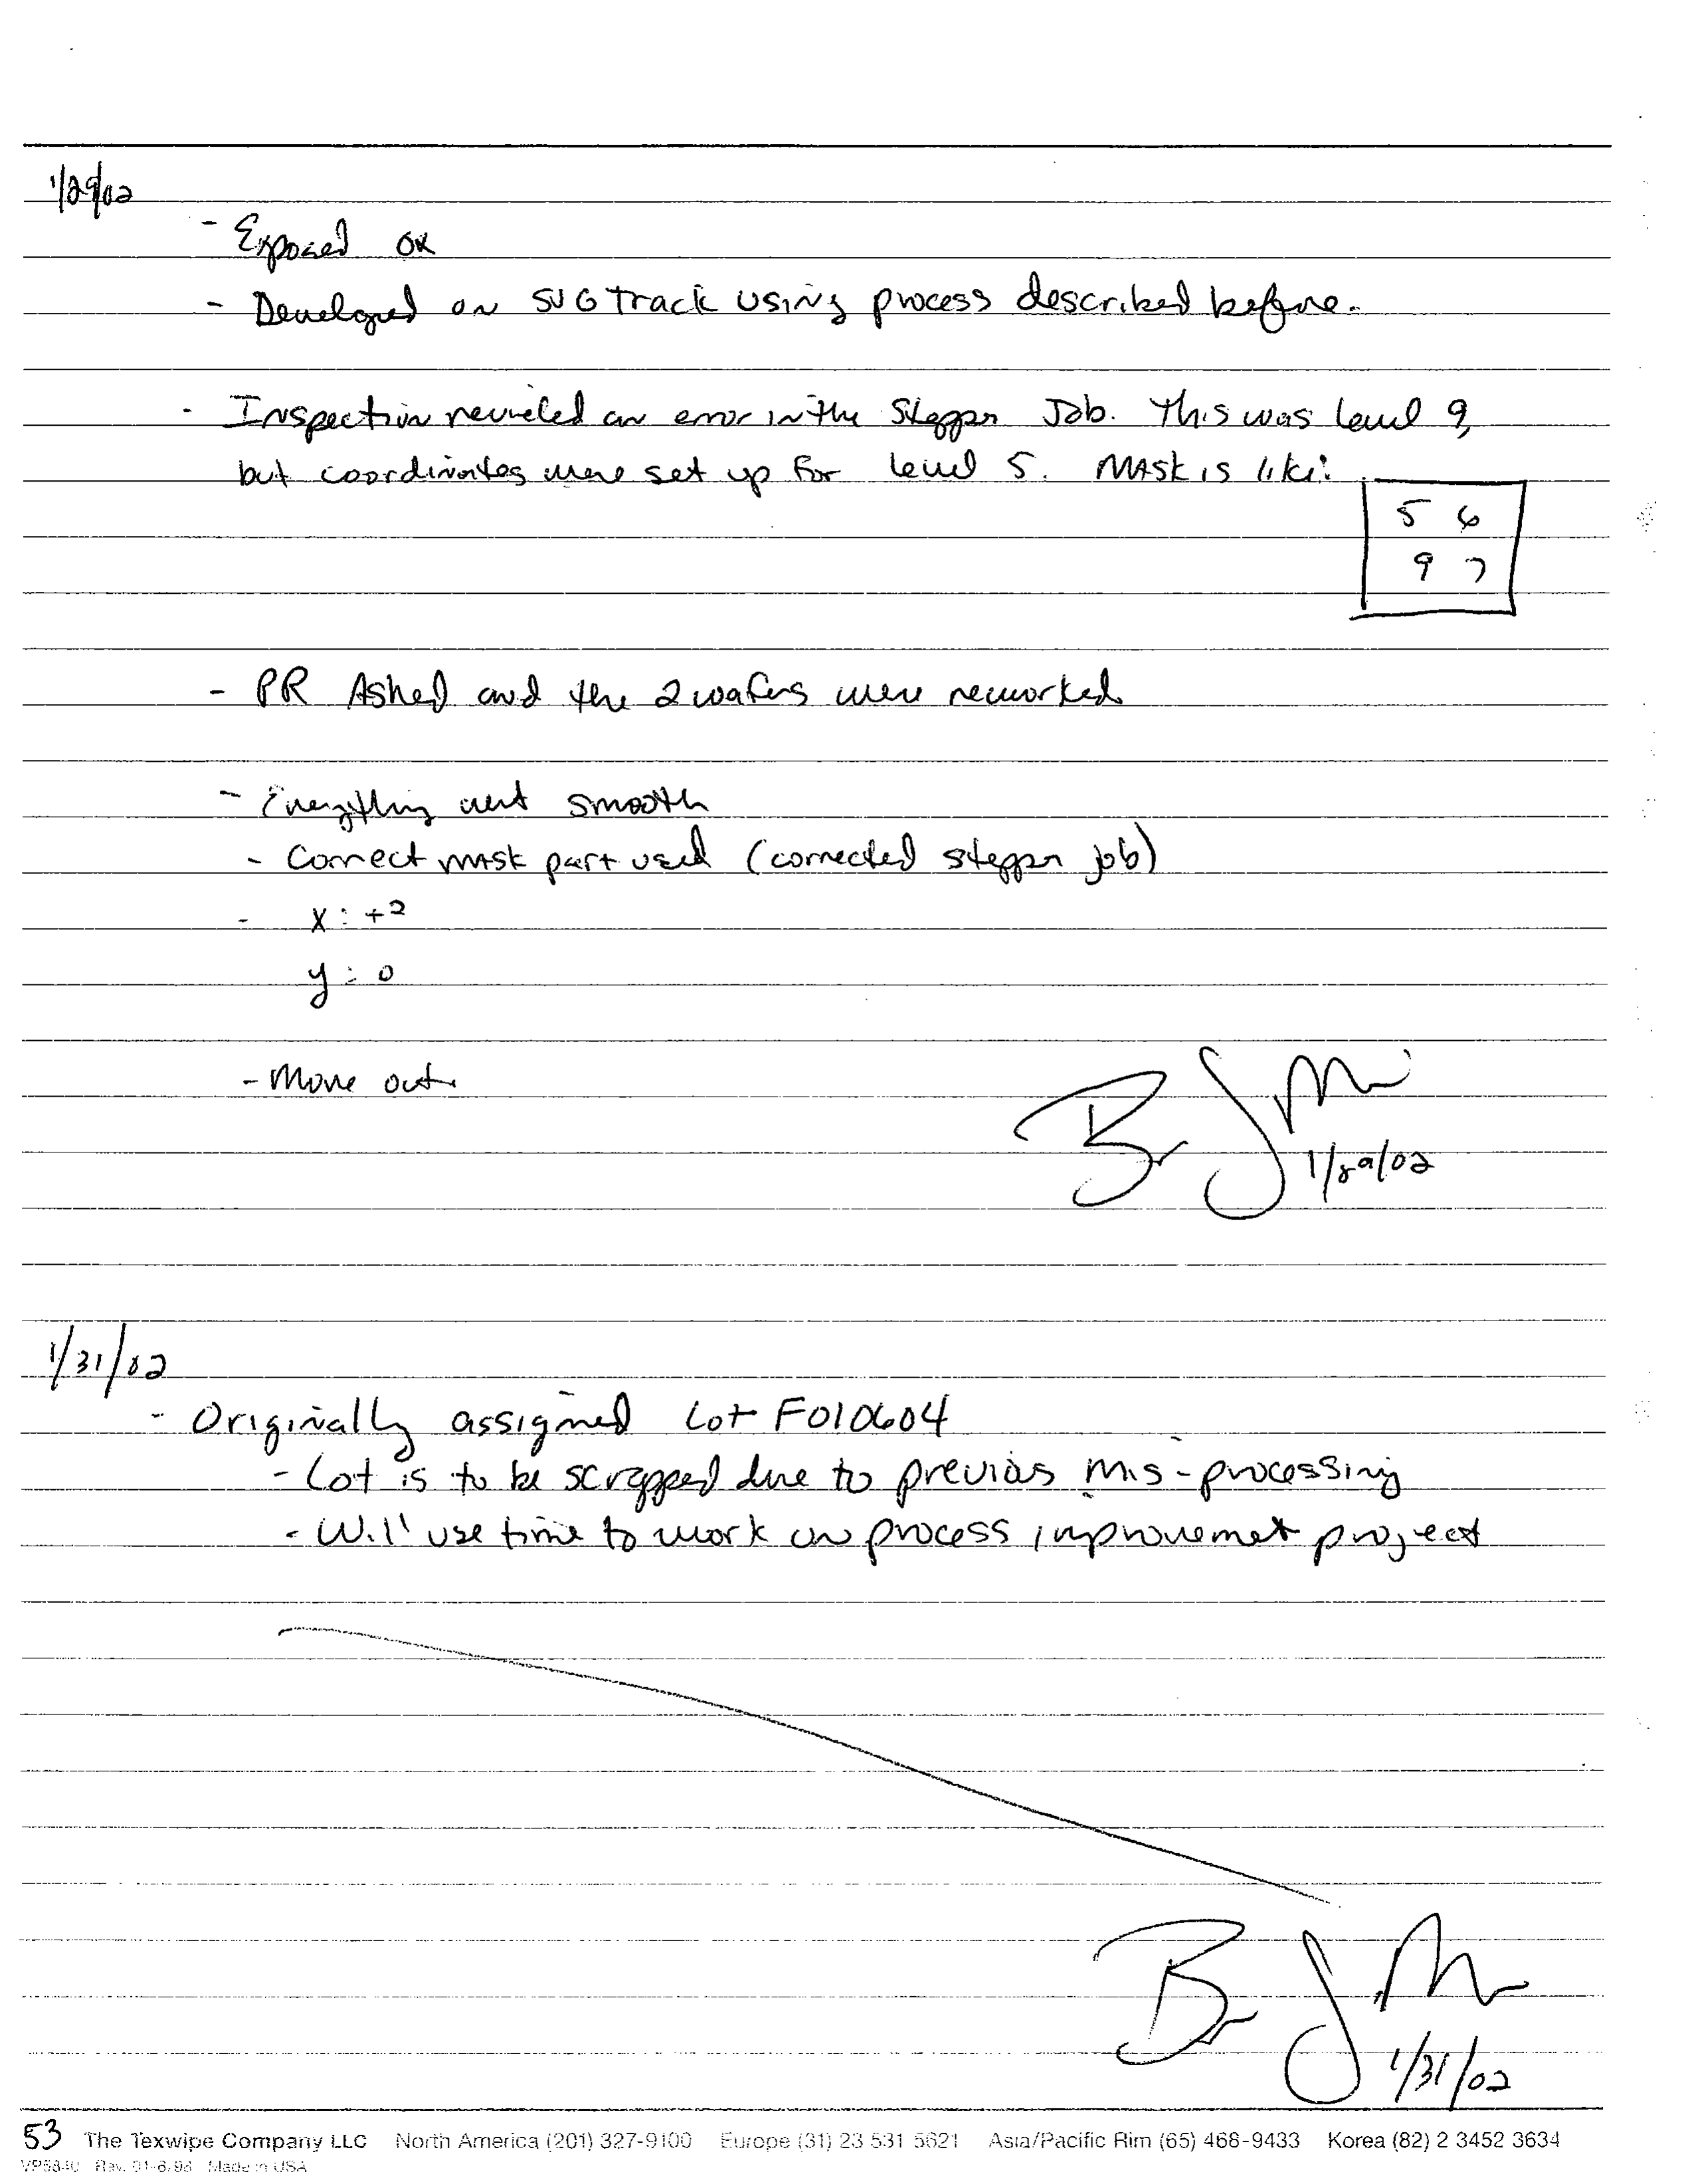 1/29/02
- Exposed OK
- Developed on SVG track using process described before.
- Inspection reveled an error in the Stepper Job. This was level 9,
but coordinates were set up for level 5. MASK is like:
5 6
9 7
- PR Ashed and the 2 wafers were reworked
- Everything went smooth
- Correct mask part used (corrected stepper job)
- x: +2
y: 0
- Move out.
1/29/02
1/31/02
- Originally assigned Lot F010604
- Lot is to be scrapped due to previos mis-processing
- Will use time to work on process improvemet project
1/31/02
53 The Texwipe Company LLC North America (201) 327-9100 Europe (31) 23 531 5621 Asia/Pacific Rim (65) 468-9433 Korea (82) 2 3452 3634
VP5840 Rev. 01-8/98 Made in USA